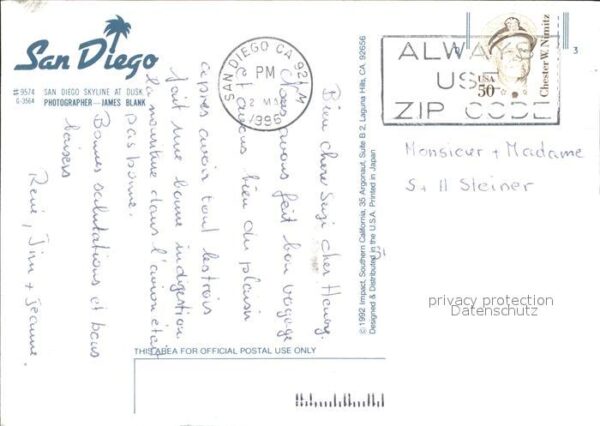 San Diego
# 9574 SAN DIEGO SKYLINE AT DUSK
G-3564 PHOTOGRAPHER—JAMES BLANK
SAN DIEGO CA 921
PM
2 MA
1996
ALWAYS
USE
ZIP CODE
USA
50
Chester W. Nimitz
3
Bien chers Suzi, cher Henry.
Nous avons fait bon voyage
et avons bien du plaisir
après avoir tout les trois
fait une bonne indigestion
la nourriture dans l'avion était
pas bonne.
Bonnes salutations et bons
baisers
René, Jim + Jeanne.
© 1992 Impact, Southern California, 35 Argonaut, Suite B 2, Laguna Hills, CA. 92656
Designed & Distributed in the U.S.A. Printed in Japan
Monsieur + Madame
S + H Steiner
privacy protection
Datenschutz
THIS AREA FOR OFFICIAL POSTAL USE ONLY